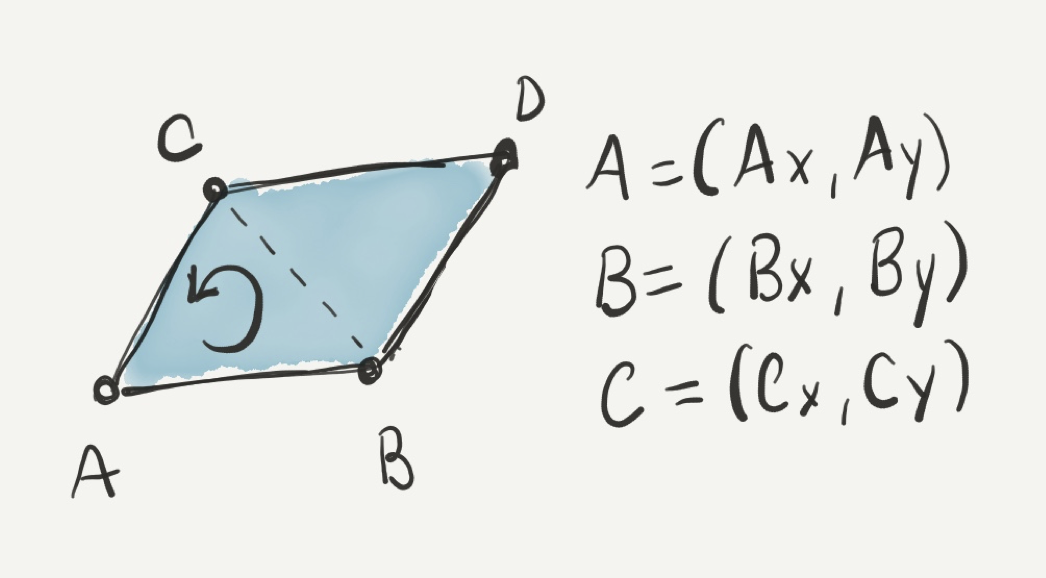 C
D
A
B
A = (Ax, Ay)
B = (Bx, By)
C = (Cx, Cy)